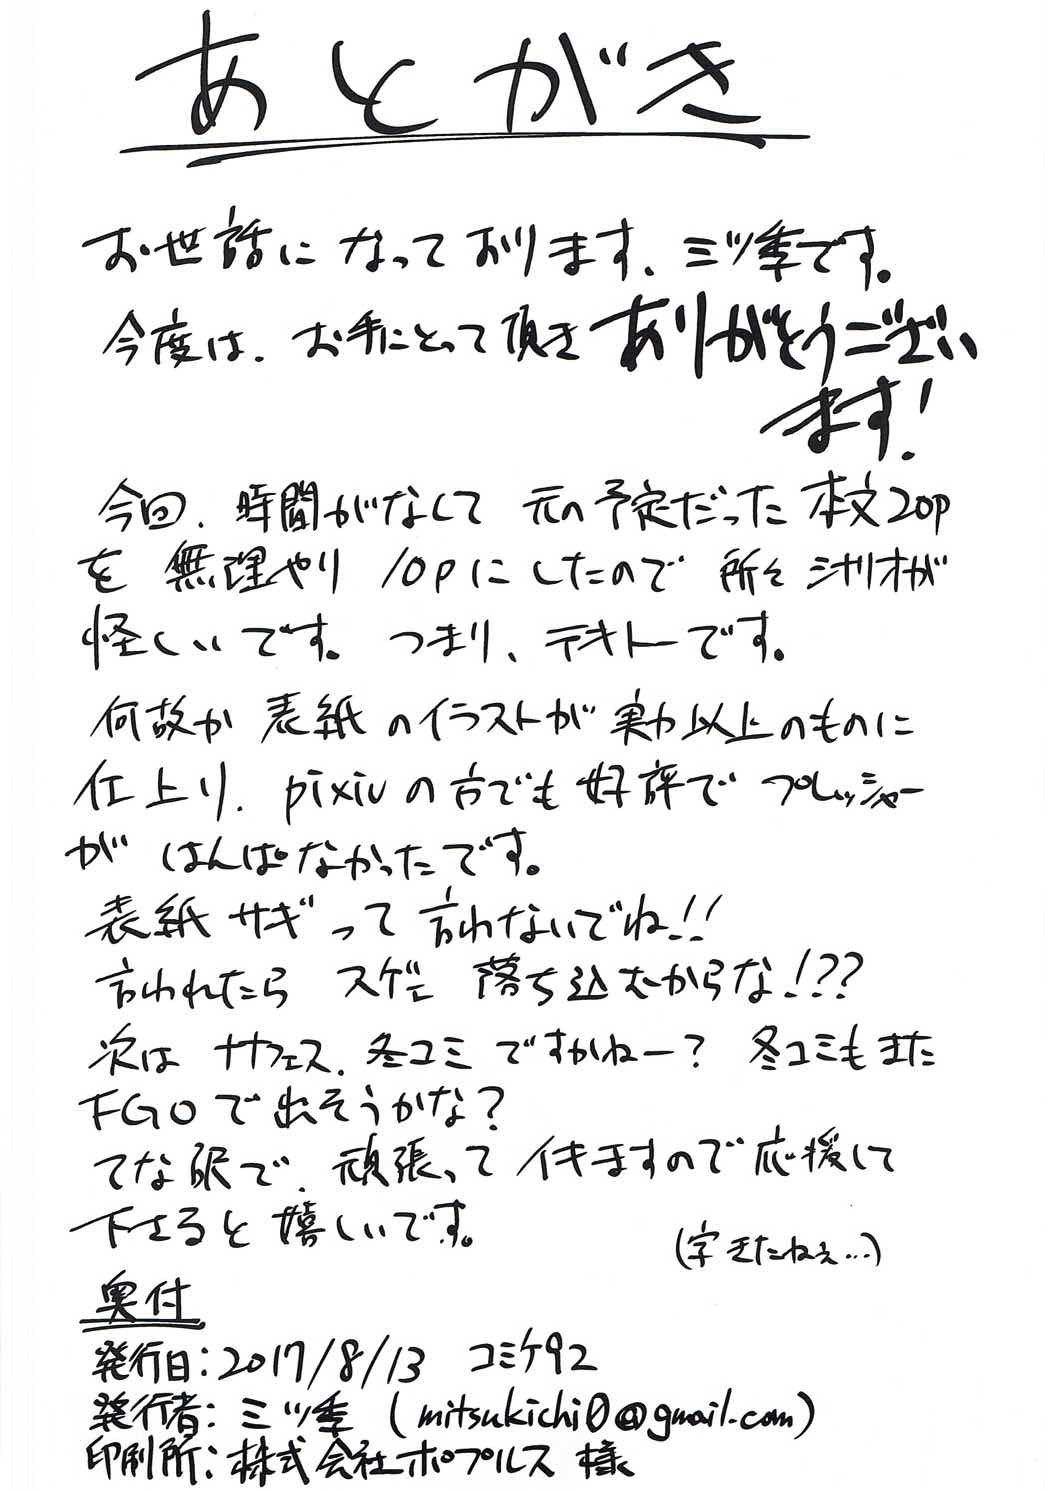 あとがき
お世話になっております、ミツ季です。
今度は、お手にとって頂きありがとうござい
ます!
今回、時間がなくて 元の予定だった 本文20p
を 無理やり 10pにしたので 所々シナリオが
怪しいです。 つまり、テキトーです。
何故か 表紙のイラストが 実力以上のものに
仕上り、pixivの方でも好評で プレッシャー
が はんぱなかったです。
表紙サギって 言わないでね!!
言われたら スゲェ 落ち込むからな!??
次は サナフェス、冬コミ ですかねー? 冬コミもまた
FGOで出そうかな?
てな訳で、頑張ってイキますので応援して
下さると嬉しいです。
(字きたねぇ...)
奥付
発行日:2017/8/13 コミケ92
発行者:ミツ季 (mitsukichi0@gmail.com)
印刷所:株式会社ポプルス 様